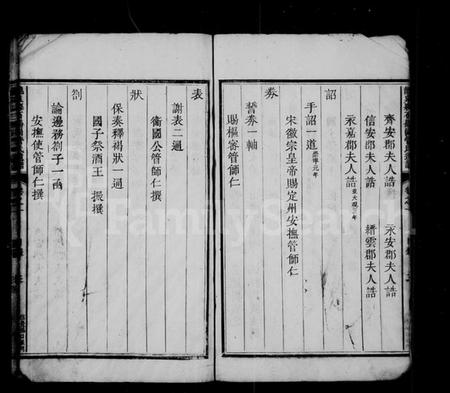 齊安郡夫人誥 永安郡夫人誥
信安郡夫人誥 縉雲郡夫人誥
永嘉郡夫人誥 大觀三年
詔
手詔一道 崇寧元年
宋徽宗皇帝賜定州安撫管師仁
券
誓券一軸
賜樞密管師仁
表
謝表二通
衞國公管師仁撰
狀
保奏釋褐狀一通
國子祭酒王 撰
劄
論邊務劄子一函
安撫使管師仁撰
FamilySearch